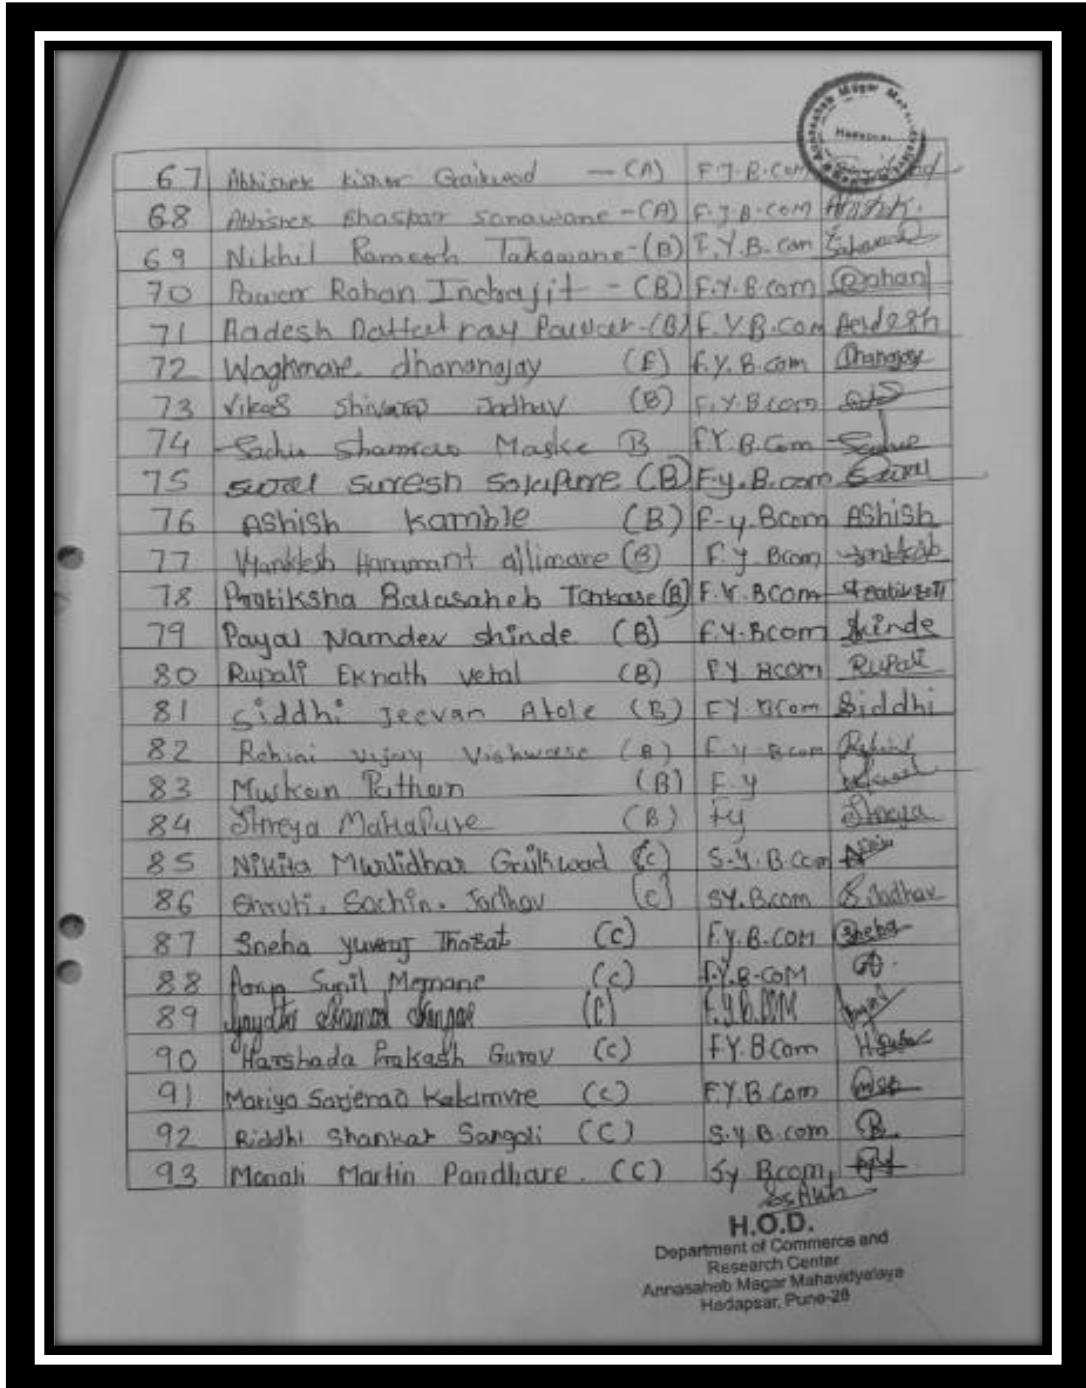 Annasaheb Magar Mahavidyalaya
Hadapsar
67 Abhishek Kishor Gaikwad - (A) F.Y.B.Com
68 Abhishek Bhaskar Sonawane - (A) F.Y.B.COM Abhishek.
69 Nikhil Ramesh Takawane - (B) F.Y.B.Com Takawane
70 Pawar Rohan Indrajit - (B) F.Y.B.com Rohan
71 Aadesh Dattatray Pawar - (B) F.Y.B.Com Aadesh
72 Waghmare dhananjay (E) F.Y.B.com Dhananjay
73 Vikas Shivaraj Jadhav (B) F.Y.B.com
74 Sachin Shamrao Maske B F.Y.B.Com
75 Suresh (B) F.y.B.com
76 Ashish kamble (B) F-y.Bcom AShish
77 Vyanktesh Hanamant allimare (B) F.Y Bcom
78 Pratiksha Balasaheb (B) F.Y.BCom
79 Payal Namdev shinde (B) F.Y.Bcom Shinde
80 Rupali Eknath vetal (B) F.Y Bcom Rupali
81 Siddhi Jeevan Atole (B) FY BCom Siddhi
82 Rohini vijay (B) F.Y.Bcom
83 Muskan Pathan (B) F.Y
84 Shreya Mahapure (B) Fy Shreya
85 Nikita Murlidhar Gaikwad (C) S.Y.B.Com
86 Shruti. Sachin. Jadhav (C) SY.B.com S.Jadhav
87 Sneha yuvraj Thorat (C) F.Y.B.COM Sneha
88 Sunil Memane (C) F.Y.B-COM A.
89 (C) F.Y.B.COM
90 Harshada Prakash Gurav (C) F.Y.BCom
91 Mariya Sarjerao (C) F.Y.B.Com
92 Riddhi Shankar Sangoli (C) S.Y.B.com R
93 Monali Martin Pandhare. (C) Sy Bcom,
H.O.D.
Department of Commerce and
Research Center
Annasaheb Magar Mahavidyalaya
Hadapsar, Pune-28